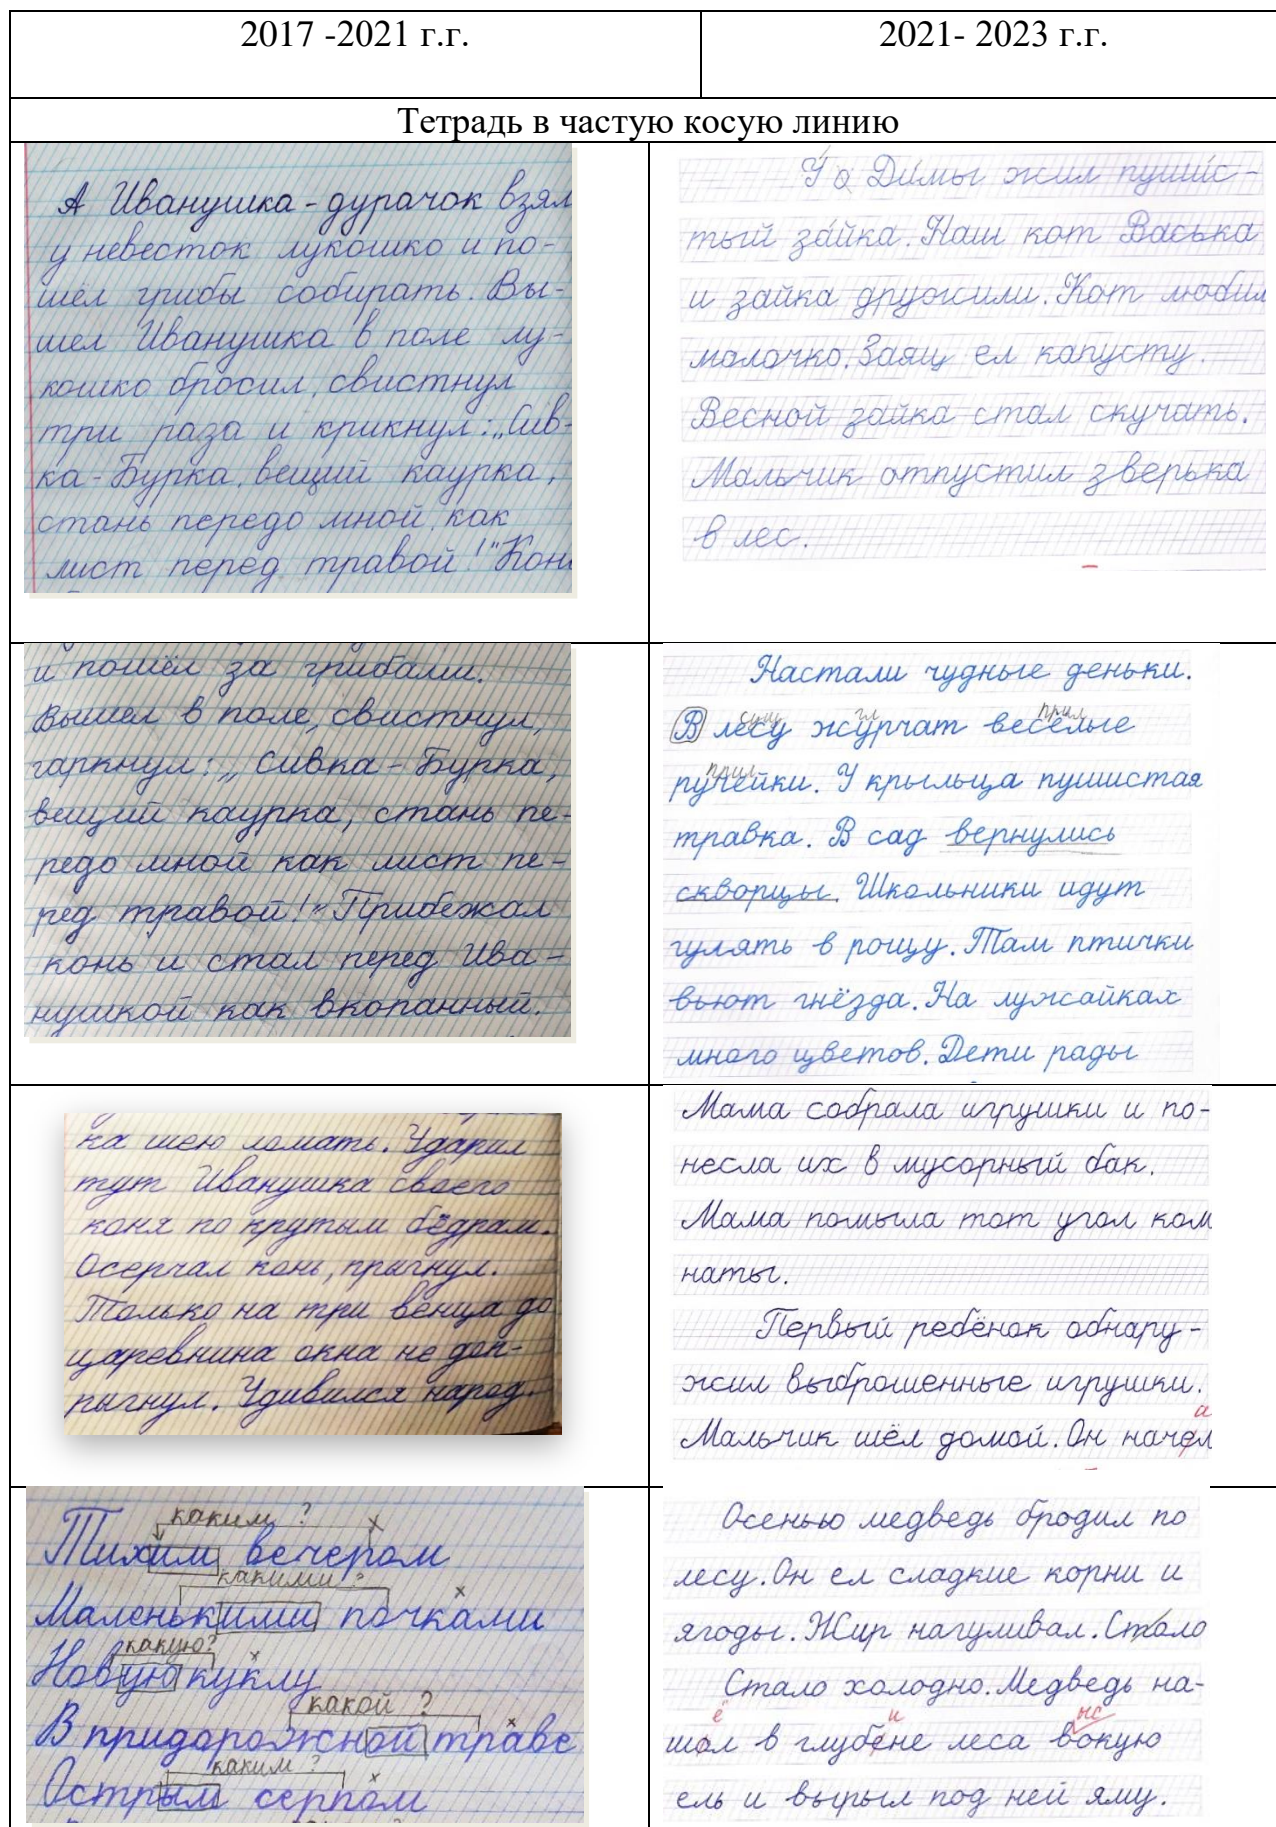 2017 -2021 г.г.
2021- 2023 г.г.
Тетрадь в частую косую линию
А Иванушка-дурачок взял
у невесток лукошко и по-
шёл грибы собирать. Вы-
шел Иванушка в поле лу-
кошко бросил, свистнул
три раза и крикнул: „Сив-
ка-Бурка, вещий каурка,
стань передо мной, как
лист перед травой!" Конь
У Димы жил пушис-
тый зайка. Наш кот Васька
и зайка дружили. Кот любил
молочко. Заяц ел капусту.
Весной зайка стал скучать.
Мальчик отпустил зверька
в лес.
и пошёл за грибами.
Вышел в поле, свистнул,
гаркнул: „ Сивка-Бурка,
вещий каурка, стань пе-
редо мной как лист пе-
ред травой!" Прибежал
конь и стал перед Ива-
нушкой как вкопанный.
Настали чудные деньки.
сущ гл прил
В лесу журчат весёлые
прил
ручейки. У крыльца пушистая
травка. В сад вернулись
скворцы. Школьники идут
гулять в рощу. Там птички
вьют гнёзда. На лужайках
много цветов. Дети рады
ка шею ломать. Ударил
тут Иванушка своего
коня по крутым бёдрам.
Осерчал конь, прыгнул.
Только на три венца до
царевнина окна не доп-
рыгнул. Удивился народ.
Мама собрала игрушки и по-
несла их в мусорный бак.
Мама помыла тот угол ком
наты.
Первый ребёнок обнару-
жил выброшенные игрушки.
а
Мальчик шёл домой. Он начел
каким ? х
Тихим вечером
какими ? х
Маленькими почками
какую? х
Новую куклу
какой ? х
В придорожной траве
каким ? х
Острым серпом
Осенью медведь бродил по
лесу. Он ел сладкие корни и
ягоды. Жир нагуливал. Стало
Стало холодно. Медведь на-
ё и
шол в глубене леса вокую
ель и вырыл под ней яму.